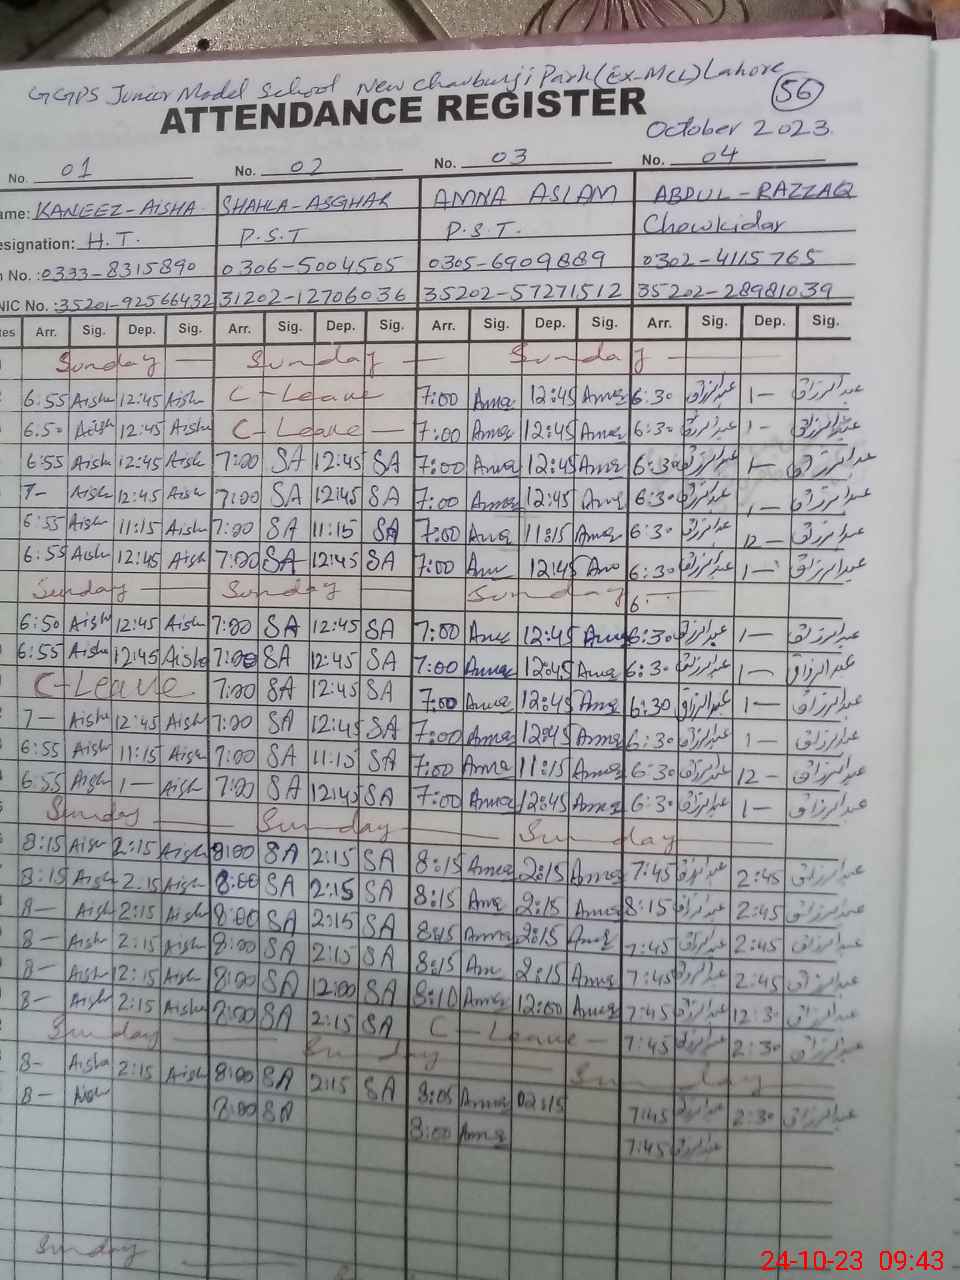 GGPS Junior Model School New Chauburji Park (Ex-MCL) Lahore
ATTENDANCE REGISTER
56
October 2023.
No. 01 No. 02 No. 03 No. 04
ame: KANEEZ-AISHA SHAHLA-ASGHAR AMNA ASLAM ABDUL-RAZZAQ
esignation: H.T. P.S.T P.S.T. Chowkidar
No.: 0333-8315890 0306-5004505 0305-6909889 0302-4115765
NIC No.: 35201-92566432 31202-12706036 35202-57271512 35202-28981039
tes Arr. Sig. Dep. Sig. Arr. Sig. Dep. Sig. Arr. Sig. Dep. Sig. Arr. Sig. Dep. Sig.
Sunday Sunday Sunday
6:55 Aisha 12:45 Aisha C-Leave 7:00 Amna 12:45 Amna 6:30 عبدالرزاق 1- عبدالرزاق
6:50 Aisha 12:45 Aisha C-Leave 7:00 Amna 12:45 Amna 6:30 عبدالرزاق 1- عبدالرزاق
6:55 Aish 12:45 Aish 7:00 SA 12:45 SA 7:00 Amna 12:45 Amna 6:30 عبدالرزاق 1- عبدالرزاق
7- Aish 12:45 Aish 7:00 SA 12:45 SA 7:00 Amna 12:45 Amna 6:30 عبدالرزاق 1- عبدالرزاق
6:55 Aish 11:15 Aish 7:00 SA 11:15 SA 7:00 Amna 11:15 Amna 6:30 عبدالرزاق 12- عبدالرزاق
6:55 Aish 12:45 Aish 7:00 SA 12:45 SA 7:00 Am 12:45 Am 6:30 عبدالرزاق 1- عبدالرزاق
Sunday Sunday Sunday 6:
6:50 Aish 12:45 Aish 7:00 SA 12:45 SA 7:00 Amna 12:45 Amna 6:30 عبدالرزاق 1- عبدالرزاق
6:55 Aish 12:45 Aisha 7:00 SA 12:45 SA 7:00 Amna 12:45 Amna 6:30 عبدالرزاق 1- عبدالرزاق
C-Leave 7:00 SA 12:45 SA 7:00 Amna 12:45 Amna 6:30 عبدالرزاق 1- عبدالرزاق
7- Aisha 12:45 Aish 7:00 SA 12:45 SA 7:00 Amna 12:45 Amna 6:30 عبدالرزاق 1- عبدالرزاق
6:55 Aish 11:15 Aish 7:00 SA 11:15 SA 7:00 Amna 11:15 Amna 6:30 عبدالرزاق 12- عبدالرزاق
6:55 Aish 1- Aish 7:00 SA 12:45 SA 7:00 Amna 12:45 Amna 6:30 عبدالرزاق 1- عبدالرزاق
Sunday Sunday Sunday
8:15 Aish 2:15 Aish 8:00 SA 2:15 SA 8:15 Amna 2:15 Amna 7:45 عبدالرزاق 2:45 عبدالرزاق
8:15 Aish 2:15 Aish 8:00 SA 2:15 SA 8:15 Amna 2:15 Amna 8:15 عبدالرزاق 2:45 عبدالرزاق
8- Aish 2:15 Aish 8:00 SA 2:15 SA 8:15 Amna 2:15 Amna 7:45 عبدالرزاق 2:45 عبدالرزاق
8- Aish 2:15 Aish 8:00 SA 2:15 SA 8:15 Am 2:15 Amna 7:45 عبدالرزاق 2:45 عبدالرزاق
8- Aish 12:15 Aish 8:00 SA 12:00 SA 8:10 Amna 12:00 Amna 7:45 عبدالرزاق 12:30 عبدالرزاق
8- Aish 2:15 Aisha 8:00 SA 2:15 SA C-Leave 7:45 عبدالرزاق 2:30 عبدالرزاق
Sunday Sunday Sunday
8- Aisha 2:15 Aish 8:00 SA 2:15 SA 8:05 Amna 02:15 7:45 عبدالرزاق 2:30 عبدالرزاق
8- Aish 8:00 SA 8:00 Amna 7:45 عبدالرزاق
Sunday
24-10-23 09:43